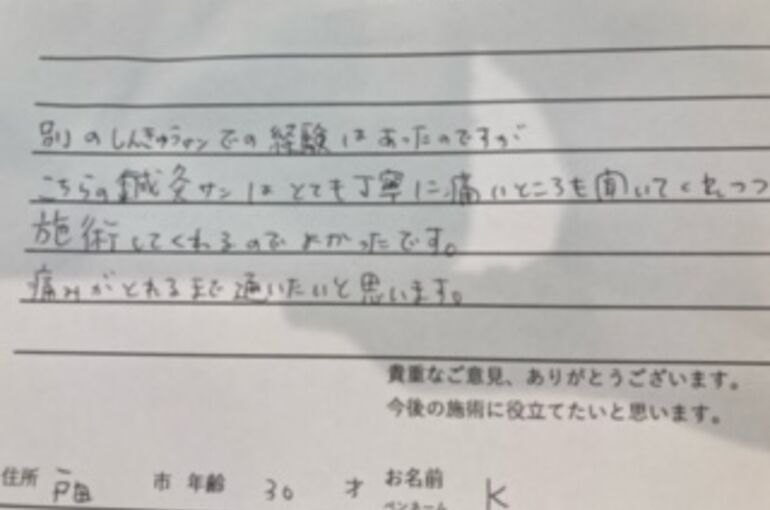 別のしんきゅうサンでの経験はあったのですが
こちらの鍼灸サンはとても丁寧に痛いところも聞いてくれつつ
施術してくれるのでよかったです。
痛みがとれるまで通いたいと思います。
貴重なご意見、ありがとうございます。
今後の施術に役立てたいと思います。
住所 戸田 市 年齢 30 才 お名前 K
ペンネーム